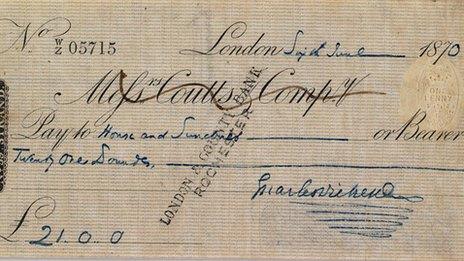 No W/Z 05715 London Sixth June 1870
Messrs Coutts & Compy
Pay to House and Sundries or Bearer
Twenty One Pounds
LONDON & COUNTY BANK
ROCHESTER
£21.0.0
ONE
PENNY